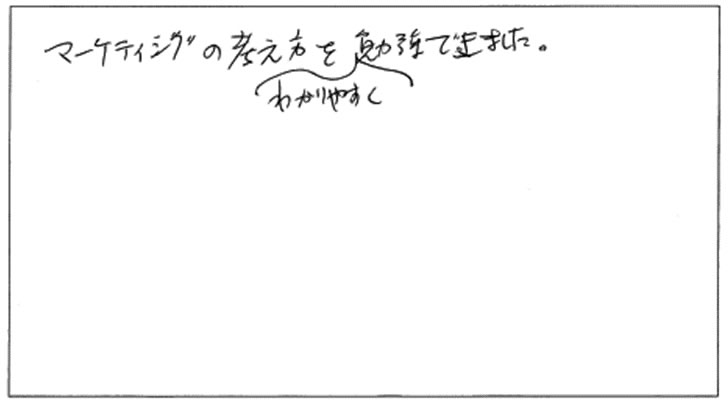 マーケティングの考え方を勉強できました。
わかりやすく